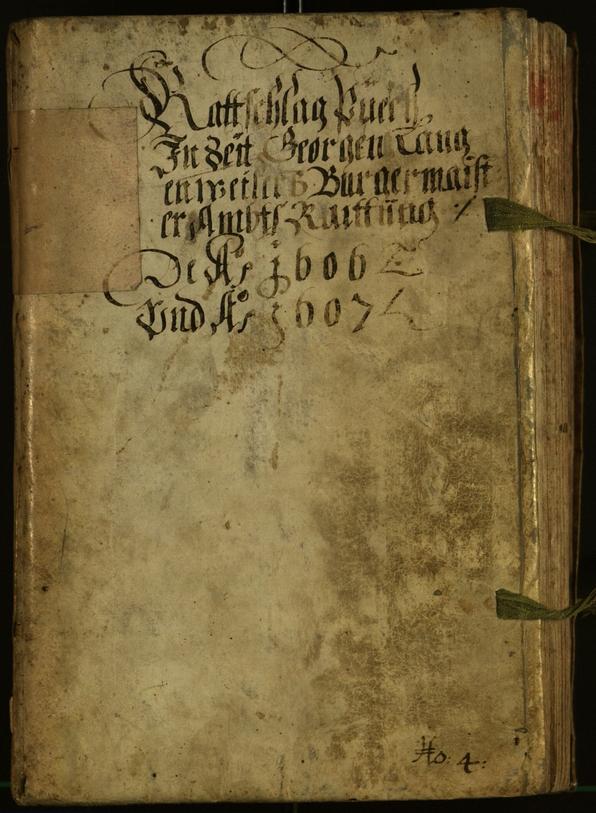 Rattschlag Püech
In Zeit Georgen Tang
enweilers Burgermaist
er Ambts Raittung ./.
De Aō 1606
Vnd Aō 1607
No: 4: